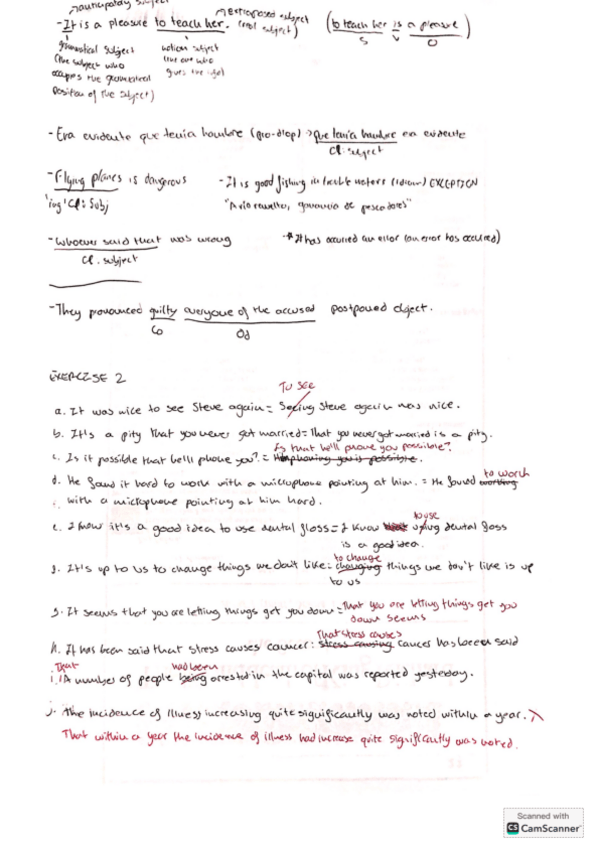 Anticipatory subject
- It is a pleasure to teach her. → Extraposed subject (real subject) (to teach her is a pleasure)
S V O
grammatical subject notion subject
(the subject who the one who
occupies the grammatical gives the
position of the subject)
- Era evidente que tenía hambre (pro-drop) → que tenía hambre era evidente
Cl. subject
- Flying planes is dangerous - It is good fishing in trouble waters (idiom) EXCEPTION
'ing' Cl: Subj "A río revuelto, ganancia de pescadores"
- Whoever said that was wrong * It has occurred an error (an error has occurred)
Cl. subject
- They pronounced guilty everyone of the accused postponed object.
Co Od
EXERCISE 2
To see
a. It was nice to see Steve again = Seeing Steve again was nice.
b. It's a pity that you never get married = That you never get married is a pity.
Is that he'll phone you possible?
c. Is it possible that he'll phone you? = phoning you is possible.
to work
d. He found it hard to work with a microphone pointing at him. = He found working
with a microphone pointing at him hard.
to use
e. I know it's a good idea to use dental floss = I know using dental floss
is a good idea.
to change
g. It's up to us to change things we don't like = changing things we don't like is up
to us
g. It seems that you are letting things get you down = That you are letting things get you
down seems
That stress causes
h. It has been said that stress causes cancer: stress causing cancer has been said
That had been
i. A number of people being arrested in the capital was reported yesterday.
j. The incidence of illness increasing quite significantly was noted within a year.
That within a year the incidence of illness had increase quite significantly was noted.
Scanned with
CS CamScanner